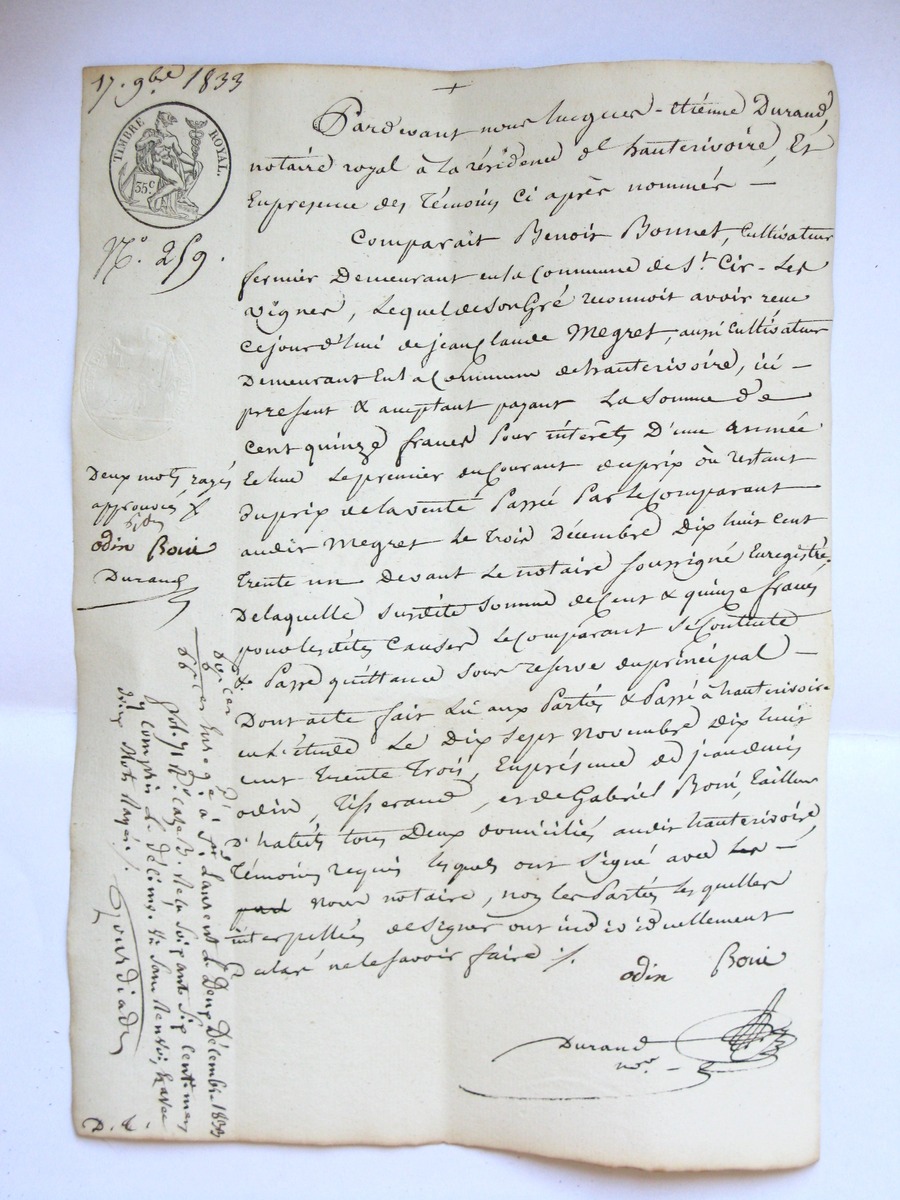 17. 9bre 1833
TIMBRE ROYAL.
35 c.
N.° 259.
Pardevant nous Jacques-Etiénne Durand,
notaire royal à la résidence d' hauterivoire, Et
Enpresence des Témoins Ci après nommés —
Comparait Benoit Bonnet, Cultivateur
fermier Demeurant en la Commune de St. Cir-Les
Vignes, Lequel de son Gré reconnoit avoir reçu
Cejourd'hui de jean Claude Megret, aussi Cultivateur
Demeurant En la Commune de hauterivoire, ici —
present & acceptant payant La Somme De
Cent quinze francs Pour intérêts D'une année
Echue Le premier du Courant du prix ou restant
Du prix de la vente Passé Par Le Comparant
audit Megret Le Trois Décembre Dix huit Cent
Trente un Devant Le notaire soussigné Enregistré,
De laquelle susdite Somme de Cent & quinze francs
pour les dites Causes Le Comparant Se Contente
& Passe quittance sous réserve du principal —
Dont acte fait Lu aux Parties & Passé à hauterivoire
en L'étude Le Dix Sept novembre Dix huit
cent Trente Trois, Enprésence de jean denis
odin, Tisserand, et de Gabriel Boui, Tailleur
D'habits tous Deux domiciliés audit hauterivoire
Témoins requis lesquels ont Signé avec —
nous notaire, non les Parties Lesquelles
interpellées de Signer ont individuellement
déclaré ne le savoir faire ./.
odin Boui
Durand
nre.
Deux mots rayés
approuvés &
odin Boui
Durand
Enregé à St. Laurent Le Deux Décembre 1833
fol. 71 Ro. Case B. Reçu Soixante Six Centimes
y Compris Le Décime
Deux Mots Rayés ./.
Gourdiade
D. L.